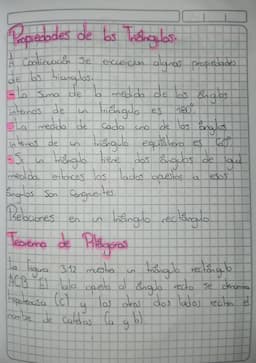 Propiedades de los Triángulos.
A Continuación Se enuncian algunas propiedades
de los triangulos.
- La Suma de la medida de los ángulos
internos de un triángulo es 180°
- La medida de cada uno de los ángulos
internos de un triángulo equilátero es 60°
- Si un triángulo tiene dos ángulos de igual
medida entonces los lados opuestos a esos
ángulos Son Congruentes.
Relaciones en un triángulo rectángulo
Teorema de Pitágoras
La figura 3.12 muestra un triángulo rectángulo
ACB El lado opuesto al ángulo recto se denomina
hipotenusa (c) y los otros dos lados reciben el
nombre de catetos (a y b).